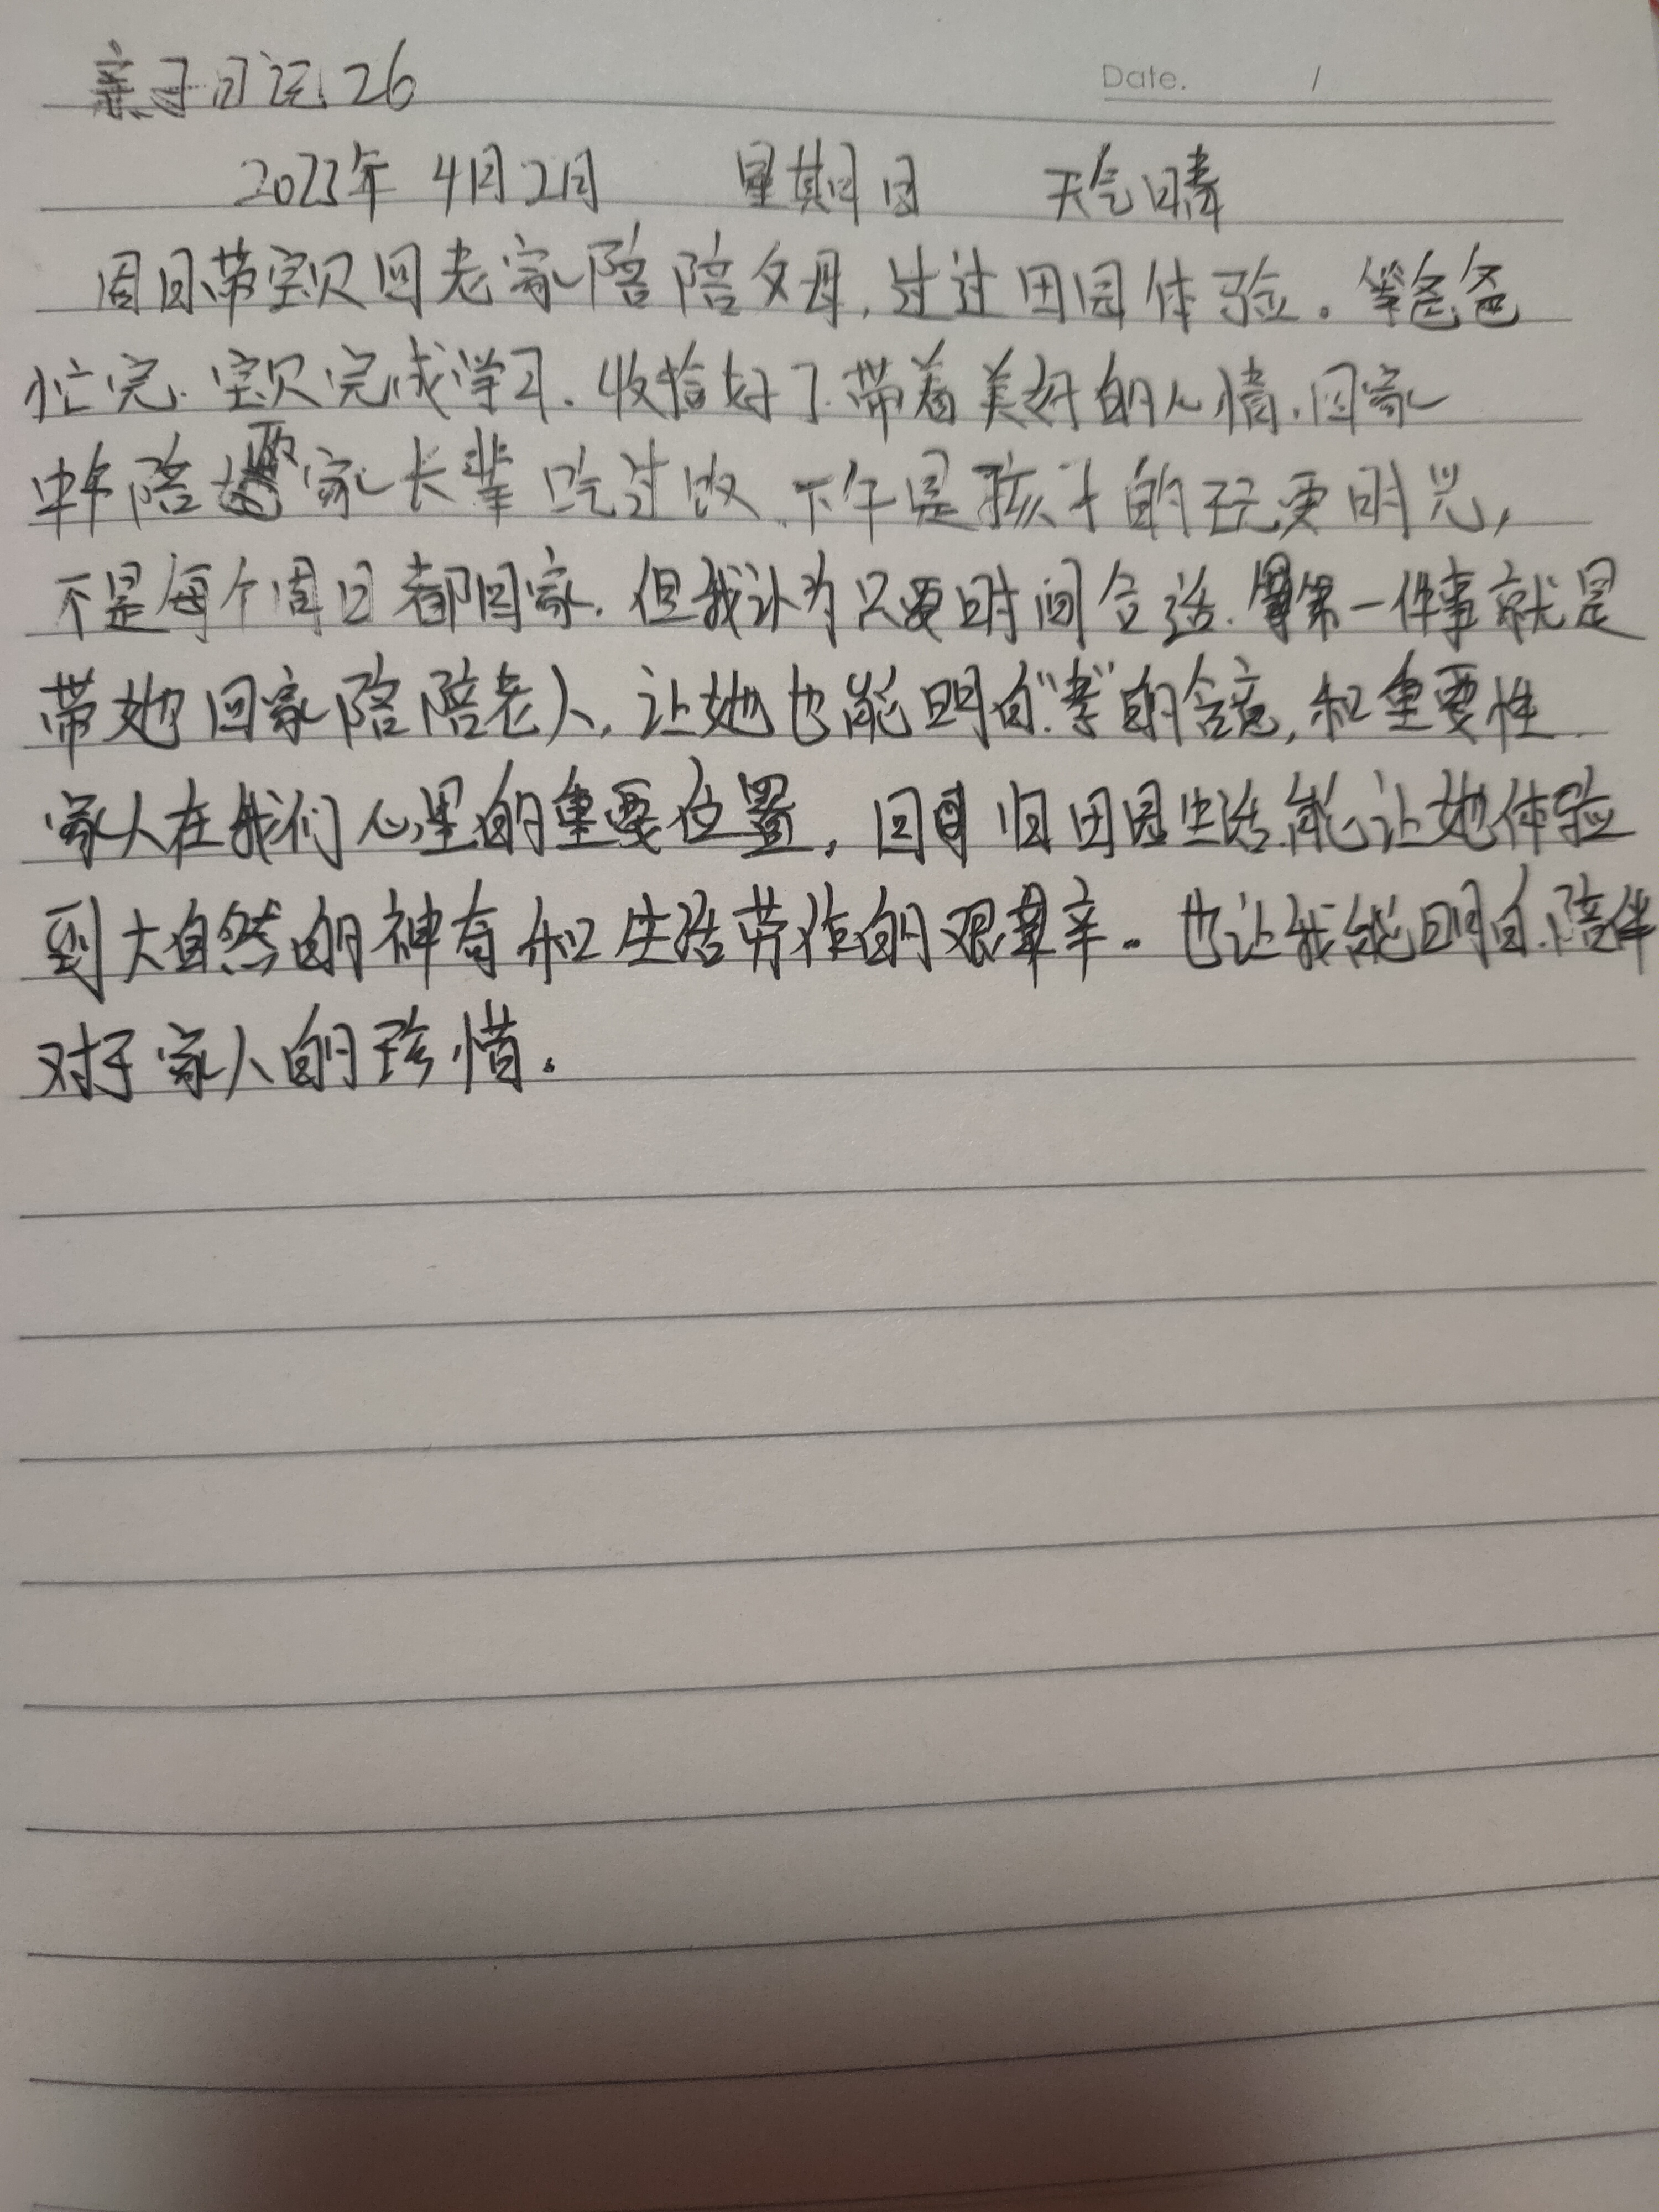 亲子日记26
Date. /
2023年 4月2日 星期日 天气晴
周日带宝贝回老家陪陪父母,过过田园体验。等爸爸
忙完.宝贝完成学习.收拾好了.带着美好的心情.回家
中午陪家长辈吃过饭.下午是孩子的玩耍时光,
不是每个周日都回家.但我认为只要时间合适.第一件事就是
带她回家陪陪老人,让她也能明白“孝”的含意,和重要性.
家人在我们心里的重要位置,回归田园生活.能让她体验
到大自然的神奇和生活劳作的艰辛。也让我能明白.陪伴
对于家人的珍惜.